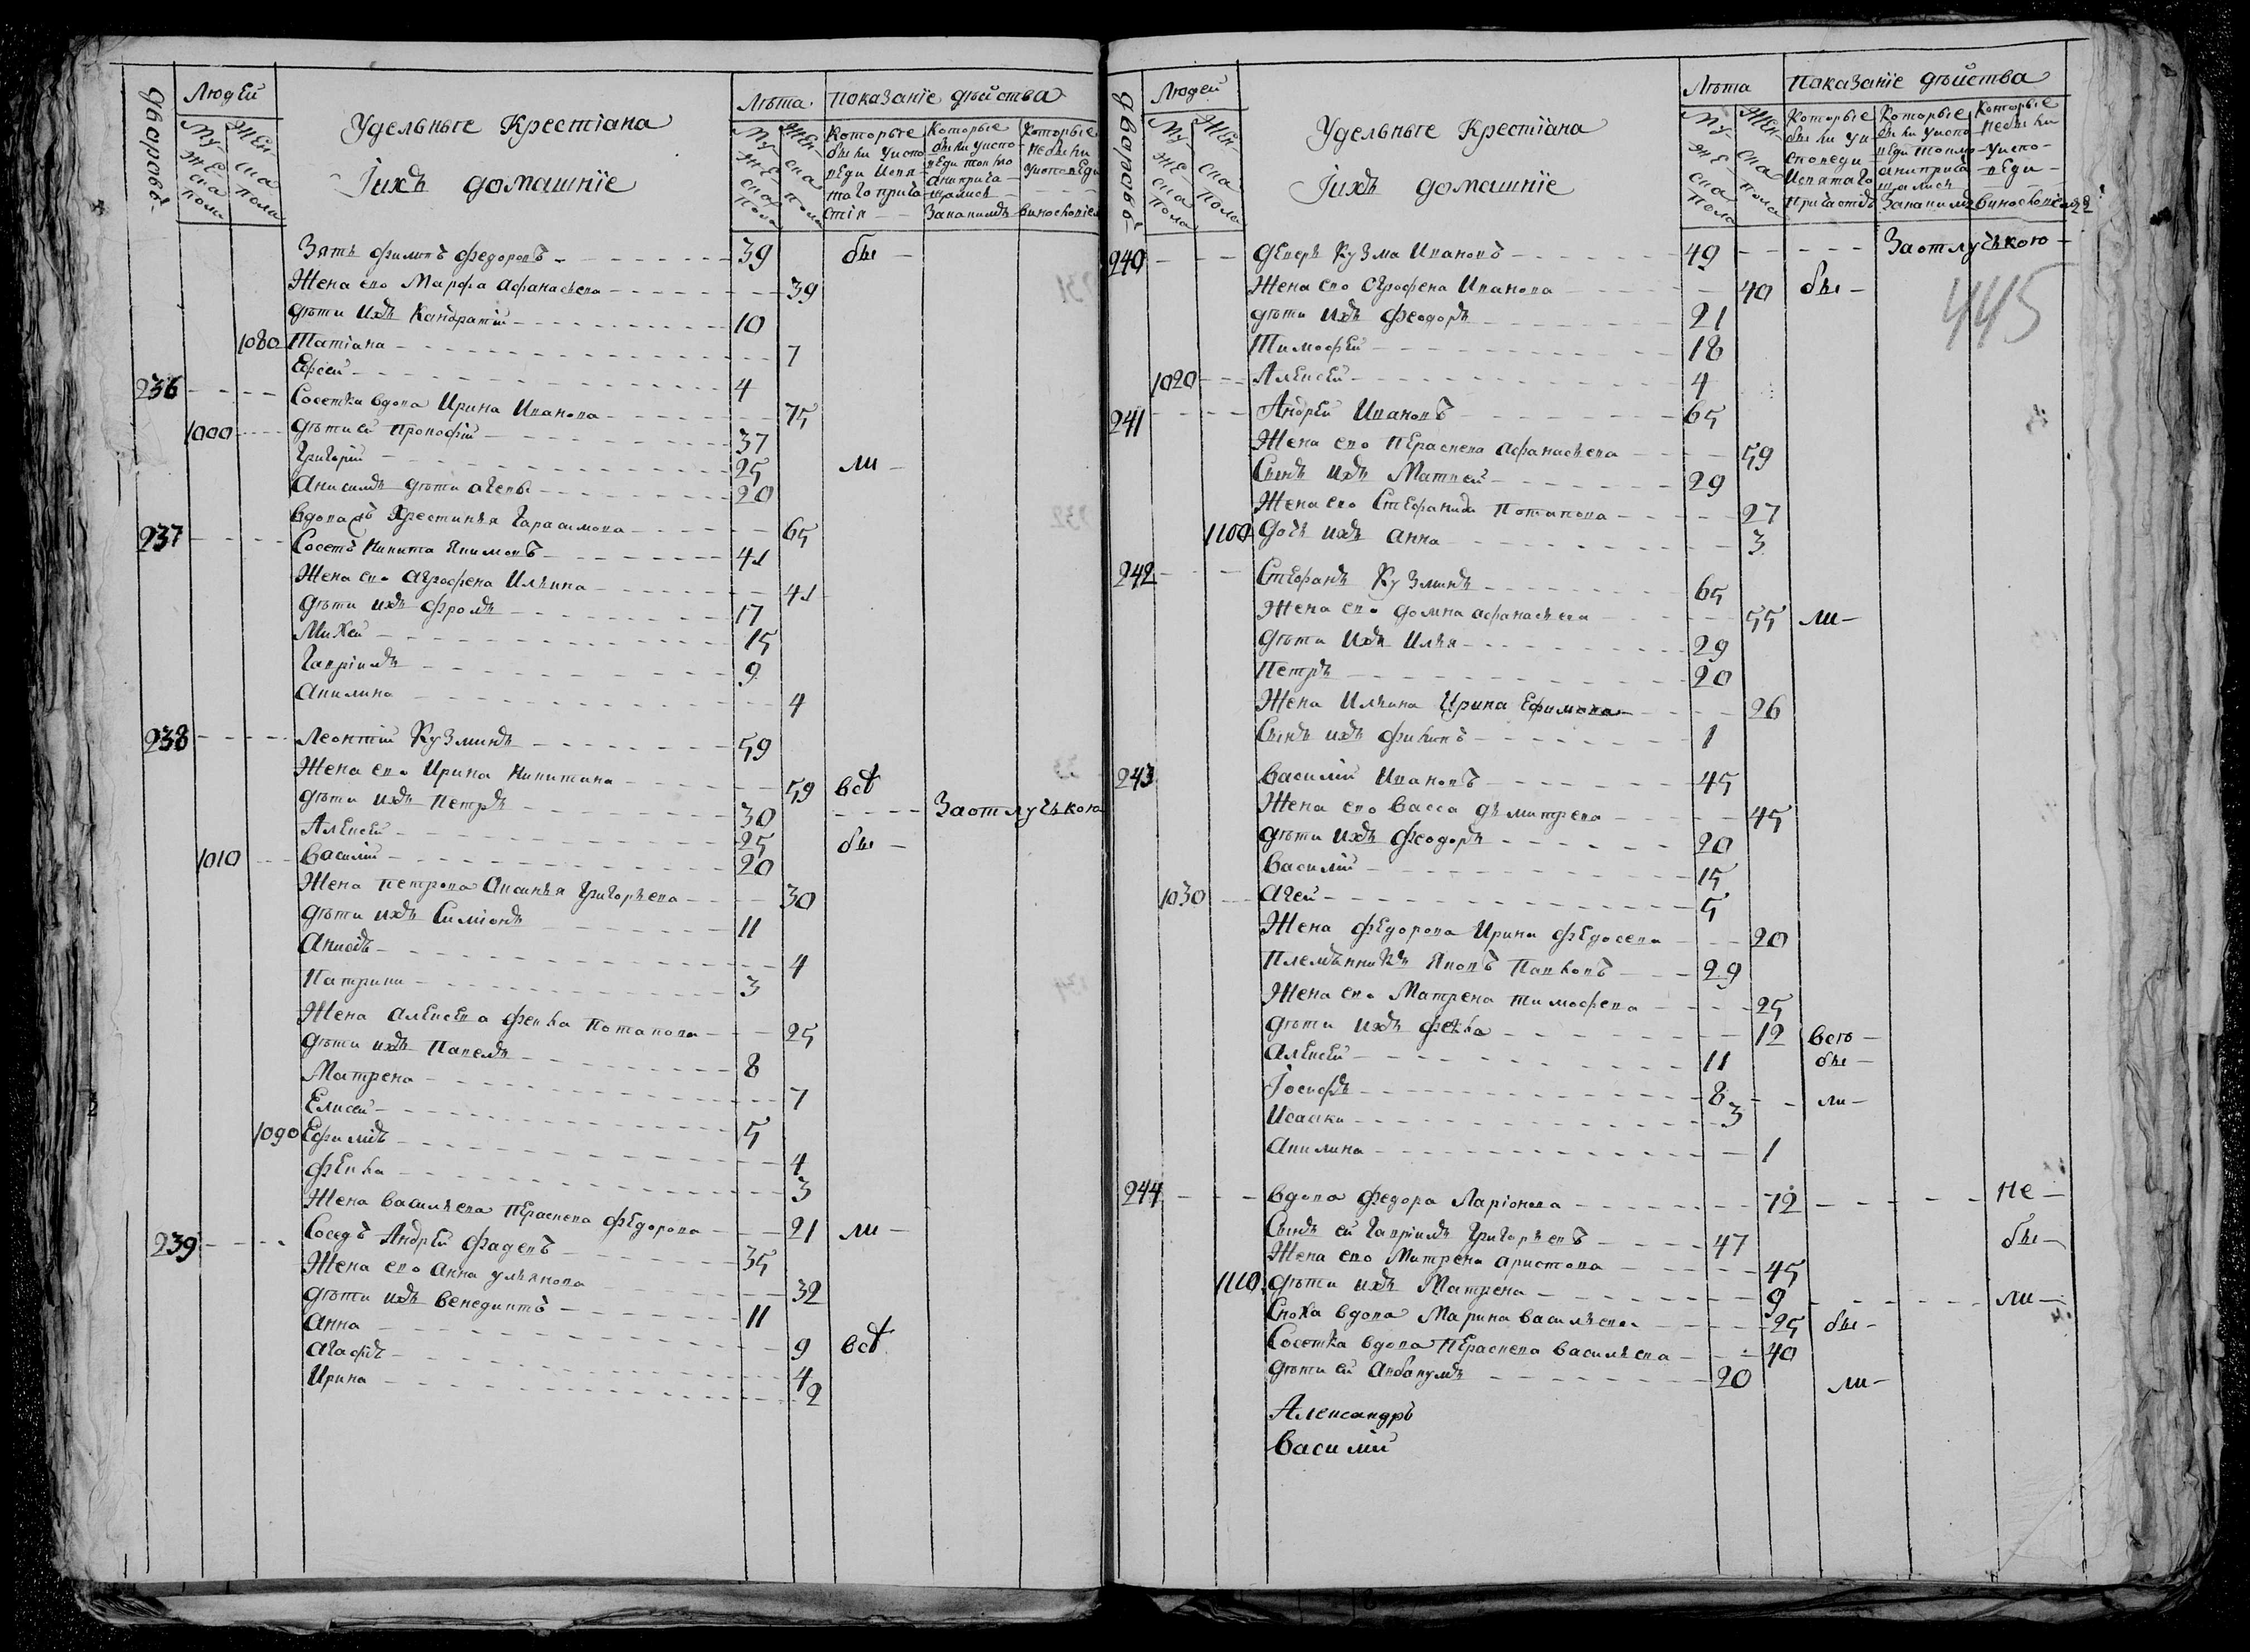 дворовъ
Людей
Мужеска пола
Женска пола
Удельныге Крестіана
Іихъ домашніе
Лѣта
Мужеска пола
Женска пола
показаніе дѣйства
Которые были уисповеди исвятаго причастія
Которые были уисповеди токмо а не причащалися Закакимъ
Которые небыли уисповеди
Зять Филипъ Федоровъ 39 бы
Жена его Марфа Афанасьева 39
дѣти ихъ Кандратій 10
1080 Татіана 7
Ефсей 4
236 Сосетка вдова Ирина Иванова 75
1000 дѣти ей Прокофій 37
Григорій 25 ли
Анисимъ дѣти агевы 20
вдова Хрестинья Гарасимова 65
237 Сосетъ Никита Якимовъ 41
Жена его Аграфена Ильина 41
дѣти ихъ Фролъ 17
Михей 15
Гавріилъ 9
Акилина 4
238 Леонтій Кузминъ 59
Жена его Ирина Никитина 59 всѣ
дѣти ихъ Петръ 30 Заотлучькою
Алексей 25 бы
1010 Василій 20
Жена Петрова Аксинья Григорьева 30
дѣти ихъ Симіонъ 11
4
3
Жена Алексева Фекла Потапова 25
дѣти ихъ Павелъ 8
Матрена 7
Елисей 5
1090 Ефимія 4
Фекла 3
Жена Васильева Пераскева Федорова 21 ли
239 Соседъ Андрей Фадеевъ 35
Жена его Анна Ульянова 32
дѣти ихъ Венедиктъ 11
Анна 9 всѣ
Агафья 4
Ирина 2
дворовъ
Людей
Мужеска пола
Женска пола
Удельныге Крестіана
Іихъ домашніе
Лѣта
Мужеска пола
Женска пола
Показаніе дѣйства
Которые были уисповеди исвятаго причастія
Которые были уисповеди токмо а не причащались Закакимъ
Которые небыли уисповеди
445
240 деверь Кузма Ивановъ 49 Заотлучькою
Жена его Аграфена Иванова 40 бы
дѣти ихъ Феодоръ 21
Тимофей 18
1020 Алексей 4
241 Андрей Ивановъ 65
Жена его Пераскева Афанасьева 59
Сынъ ихъ Матвей 29
Жена его Стефанида Потапова 27
1100 дочь ихъ Анна 3
242 Стефанъ Кузминъ 65
Жена его Домна Афанасьева 55 ли
дѣти ихъ Илья 29
Петръ 20
Жена Ильина Ирина Ефимова 26
Сынъ ихъ Филипъ 1
243 Василій Ивановъ 45
Жена его Васса Дьмитрева 45
дѣти ихъ Феодоръ 20
Василій 15
1030 Агей 5
Жена Федорова Ирина Федосева 20
Племѣнникъ Яковъ Павловъ 29
Жена его Матрена Тимофева 25
дѣти ихъ Фекла 12 всѣ
Алексей 11 бы
Іосифъ 8 ли
Исакъ 3
Акилина 1
244 вдова Федора Ларіонова 72 не
Сынъ ей Гавріилъ Григорьевъ 47 бы
Жена его Матрена Аристова 45
1110 дѣти ихъ Матрена 9 ли
Сноха вдова Марина Васильева 25 бы
Сосетка вдова Пераскева Васильева 40
дѣти ей Авбакумъ 20 ли
Александръ
Василій